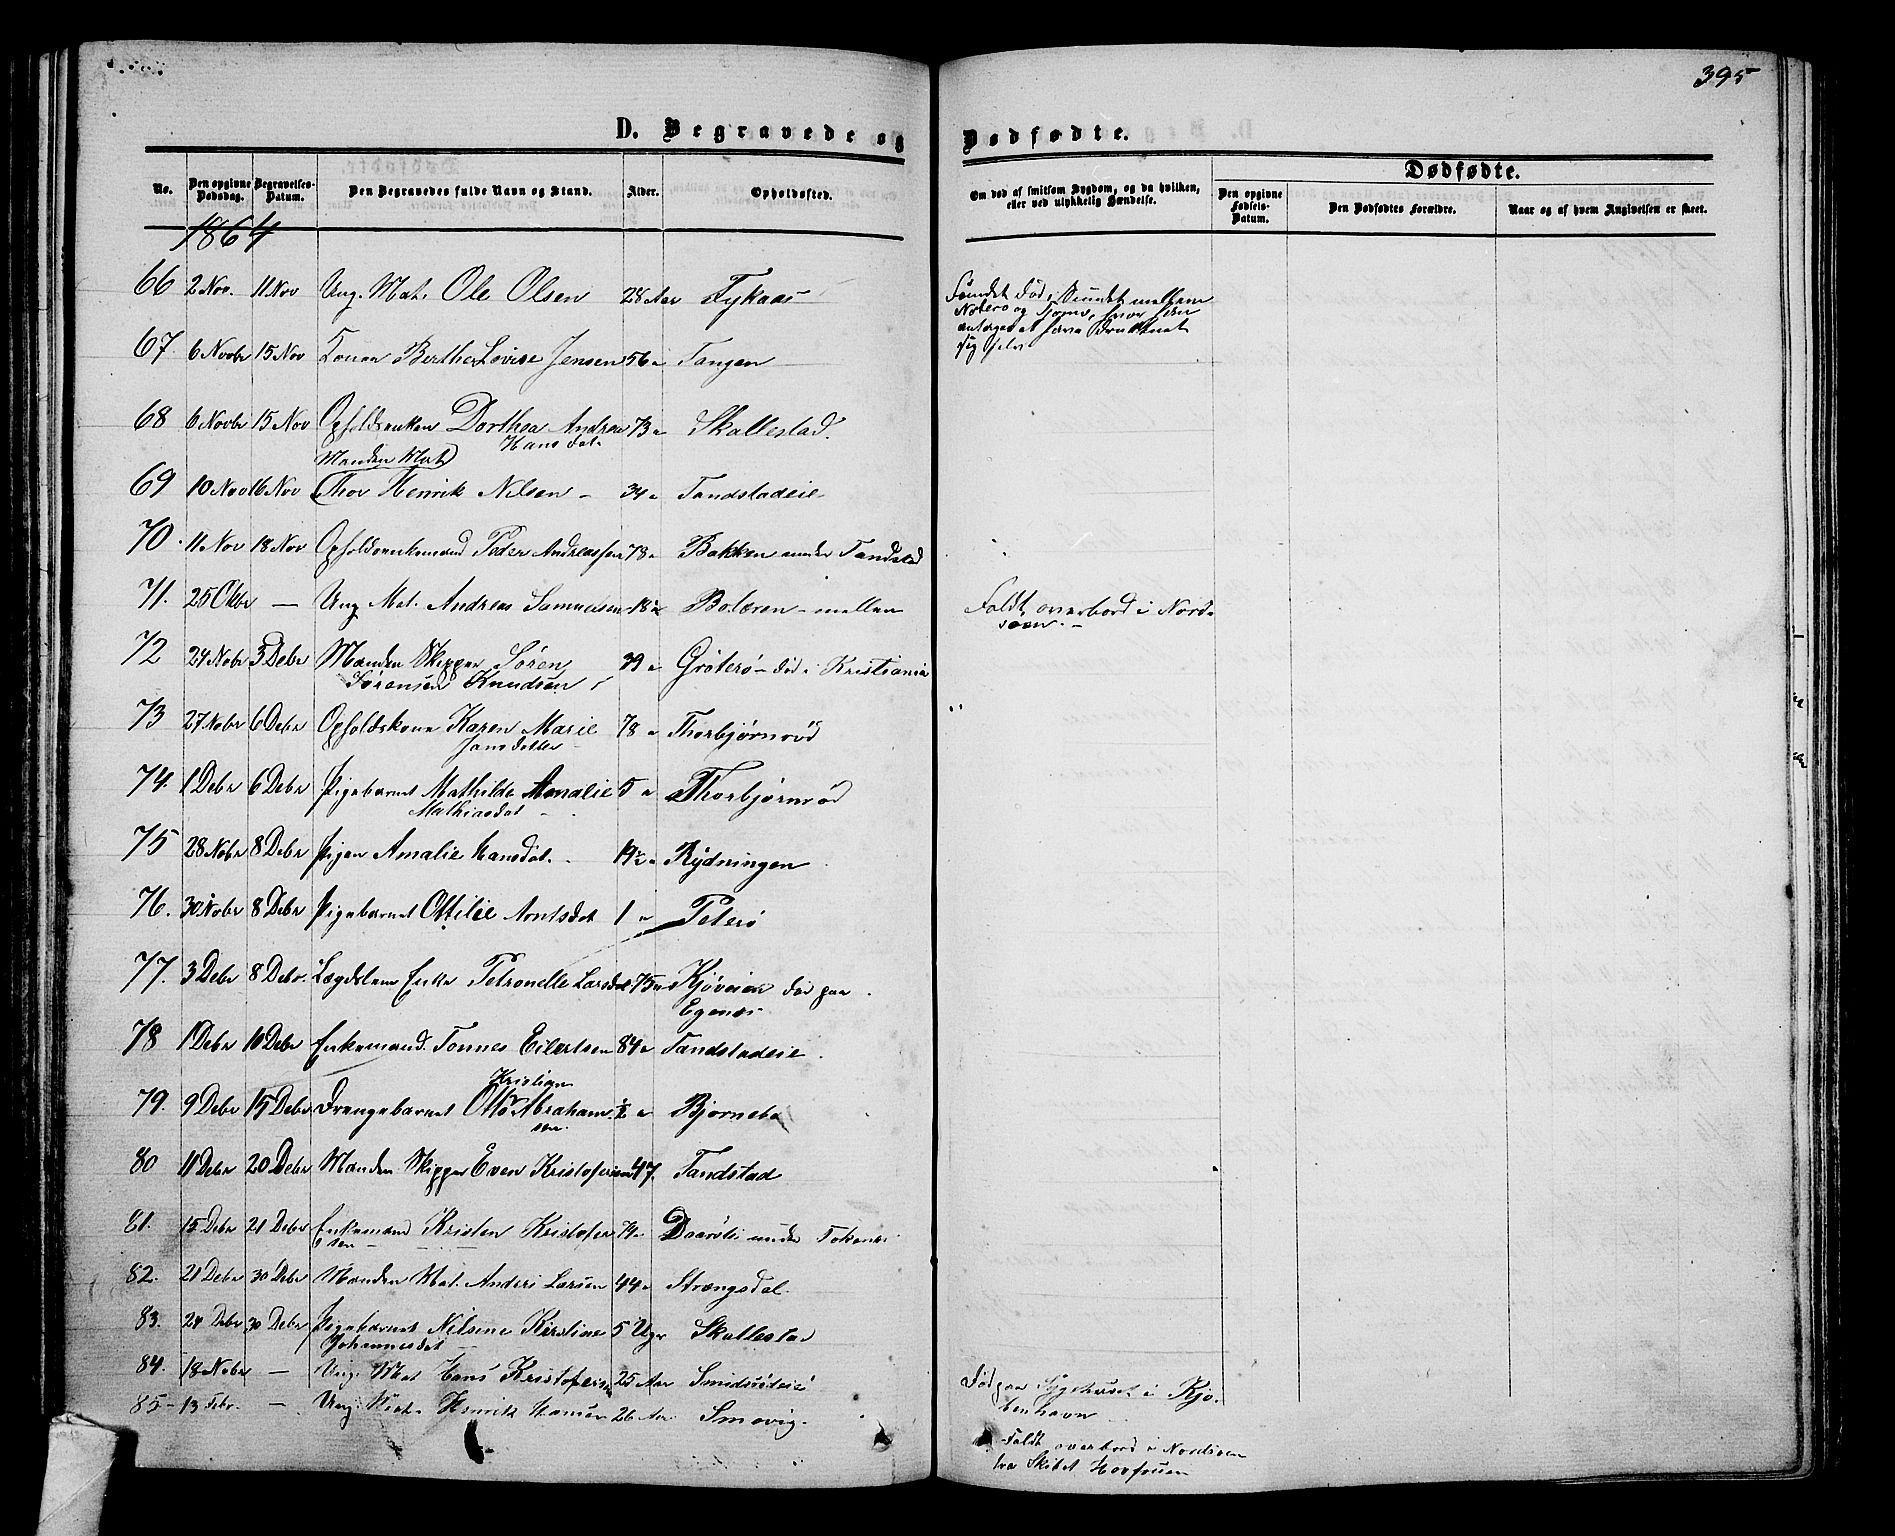 395
D. Begravede og Dødfødte.
No. Den opgivne Dødsdag. Begravelses-Datum. Den Begravedes fulde Navn og Stand. Alder. Opholdssted. Om død af smitsom Sygdom, og da hvilken, eller ved ulykkelig Hændelse. Dødfødte. Den opgivne Fødsels-Datum. Den Dødfødtes Forældre. Naar og af hvem Angivelsen er skeet.
1864
66 2 Nov. 11 Nov Ung. Mat. Ole Olsen 28 Aar Tykaas Fundet død i Sundet mellem
Nøterø og Tjømø, hvor han
antages at have druknet
sig selv
67. 6 Novbr 15 Nov Konen Berthe Lovise Jensen 56 " Tangen
68 6 Novbr 15 Nov Opholdsenken Dorthea Andrea 73 " Skallestad.
Hansdat.
Manden Mat.
69 10 Nov 16 Nov Thor Henrik Nilsen - 34 " Tandstadeie
70. 11 Nov 18 Nov Opholdsenkemand Peder Andreassen 78 " Bakken under Tandstad
71. 25 Oktbr — Ung Mat. Andreas Samuelsen 18½ Bolæren - mellem Faldt overbord i Nord-
søen. -
72 24 Nobr 5 Debr Manden Skipper Sören 39 " Gröterö - död i Kristiania
Sørensen Knudsen
73 27 Nobr 6 Debr Opholdskone Karen Marie 78 " Thorbjørnrød
Jansdatter
74. 1 Debr 6 Debr Pigebarnet Mathilde Amalie 5 " Thorbjørnrød
Mathiasdat -
75 28 Nobr 8 Debr Pigen Amalie Hansdat. 19½ " Rydningen
76. 30 Nobr 8 Debr Pigebarnet Ottilie Arntsdat 1 " Peterø
77. 3 Debr 8 Debr. Lægdslem Enke Petronelle Larsdat 75 " Kjøveien død paa
Egenæs
78 1 Debr 10 Debr Enkemand. Tønnes Eilertsen 84 " Tandstadeie
Kristian
79. 9 Debr 15 Debr Drengebarnet Otto Abraham- ½ " Bjørnebo
sen.
80 11 Debr 20 Debr Manden Skipper Even Kristofersen 47. Tandstad
81. 15 Debr 21 Debr Enkemand Kristen Kristofer 74 " under Tokenes
sen
82. 21 Debr 30 Debr Manden Mat. Anders Larsen 44 " Strængsdal.
83. 24 Debr 30 Debr Pigebarnet Nilsine Kirstine 5 Uger Skallestad
Johannesdat
84. 18 Nobr — Ung. Mat Hans Kristofersen 25 Aar Smidsrødeie Død paa Sygehuset i Kjø-
benhavn
85 - 13 Febr. — Ung. Mat. Henrik Hansen 26 Aar Smøvig. Faldt overbord i Nordsøen
fra Skibet Havfruen